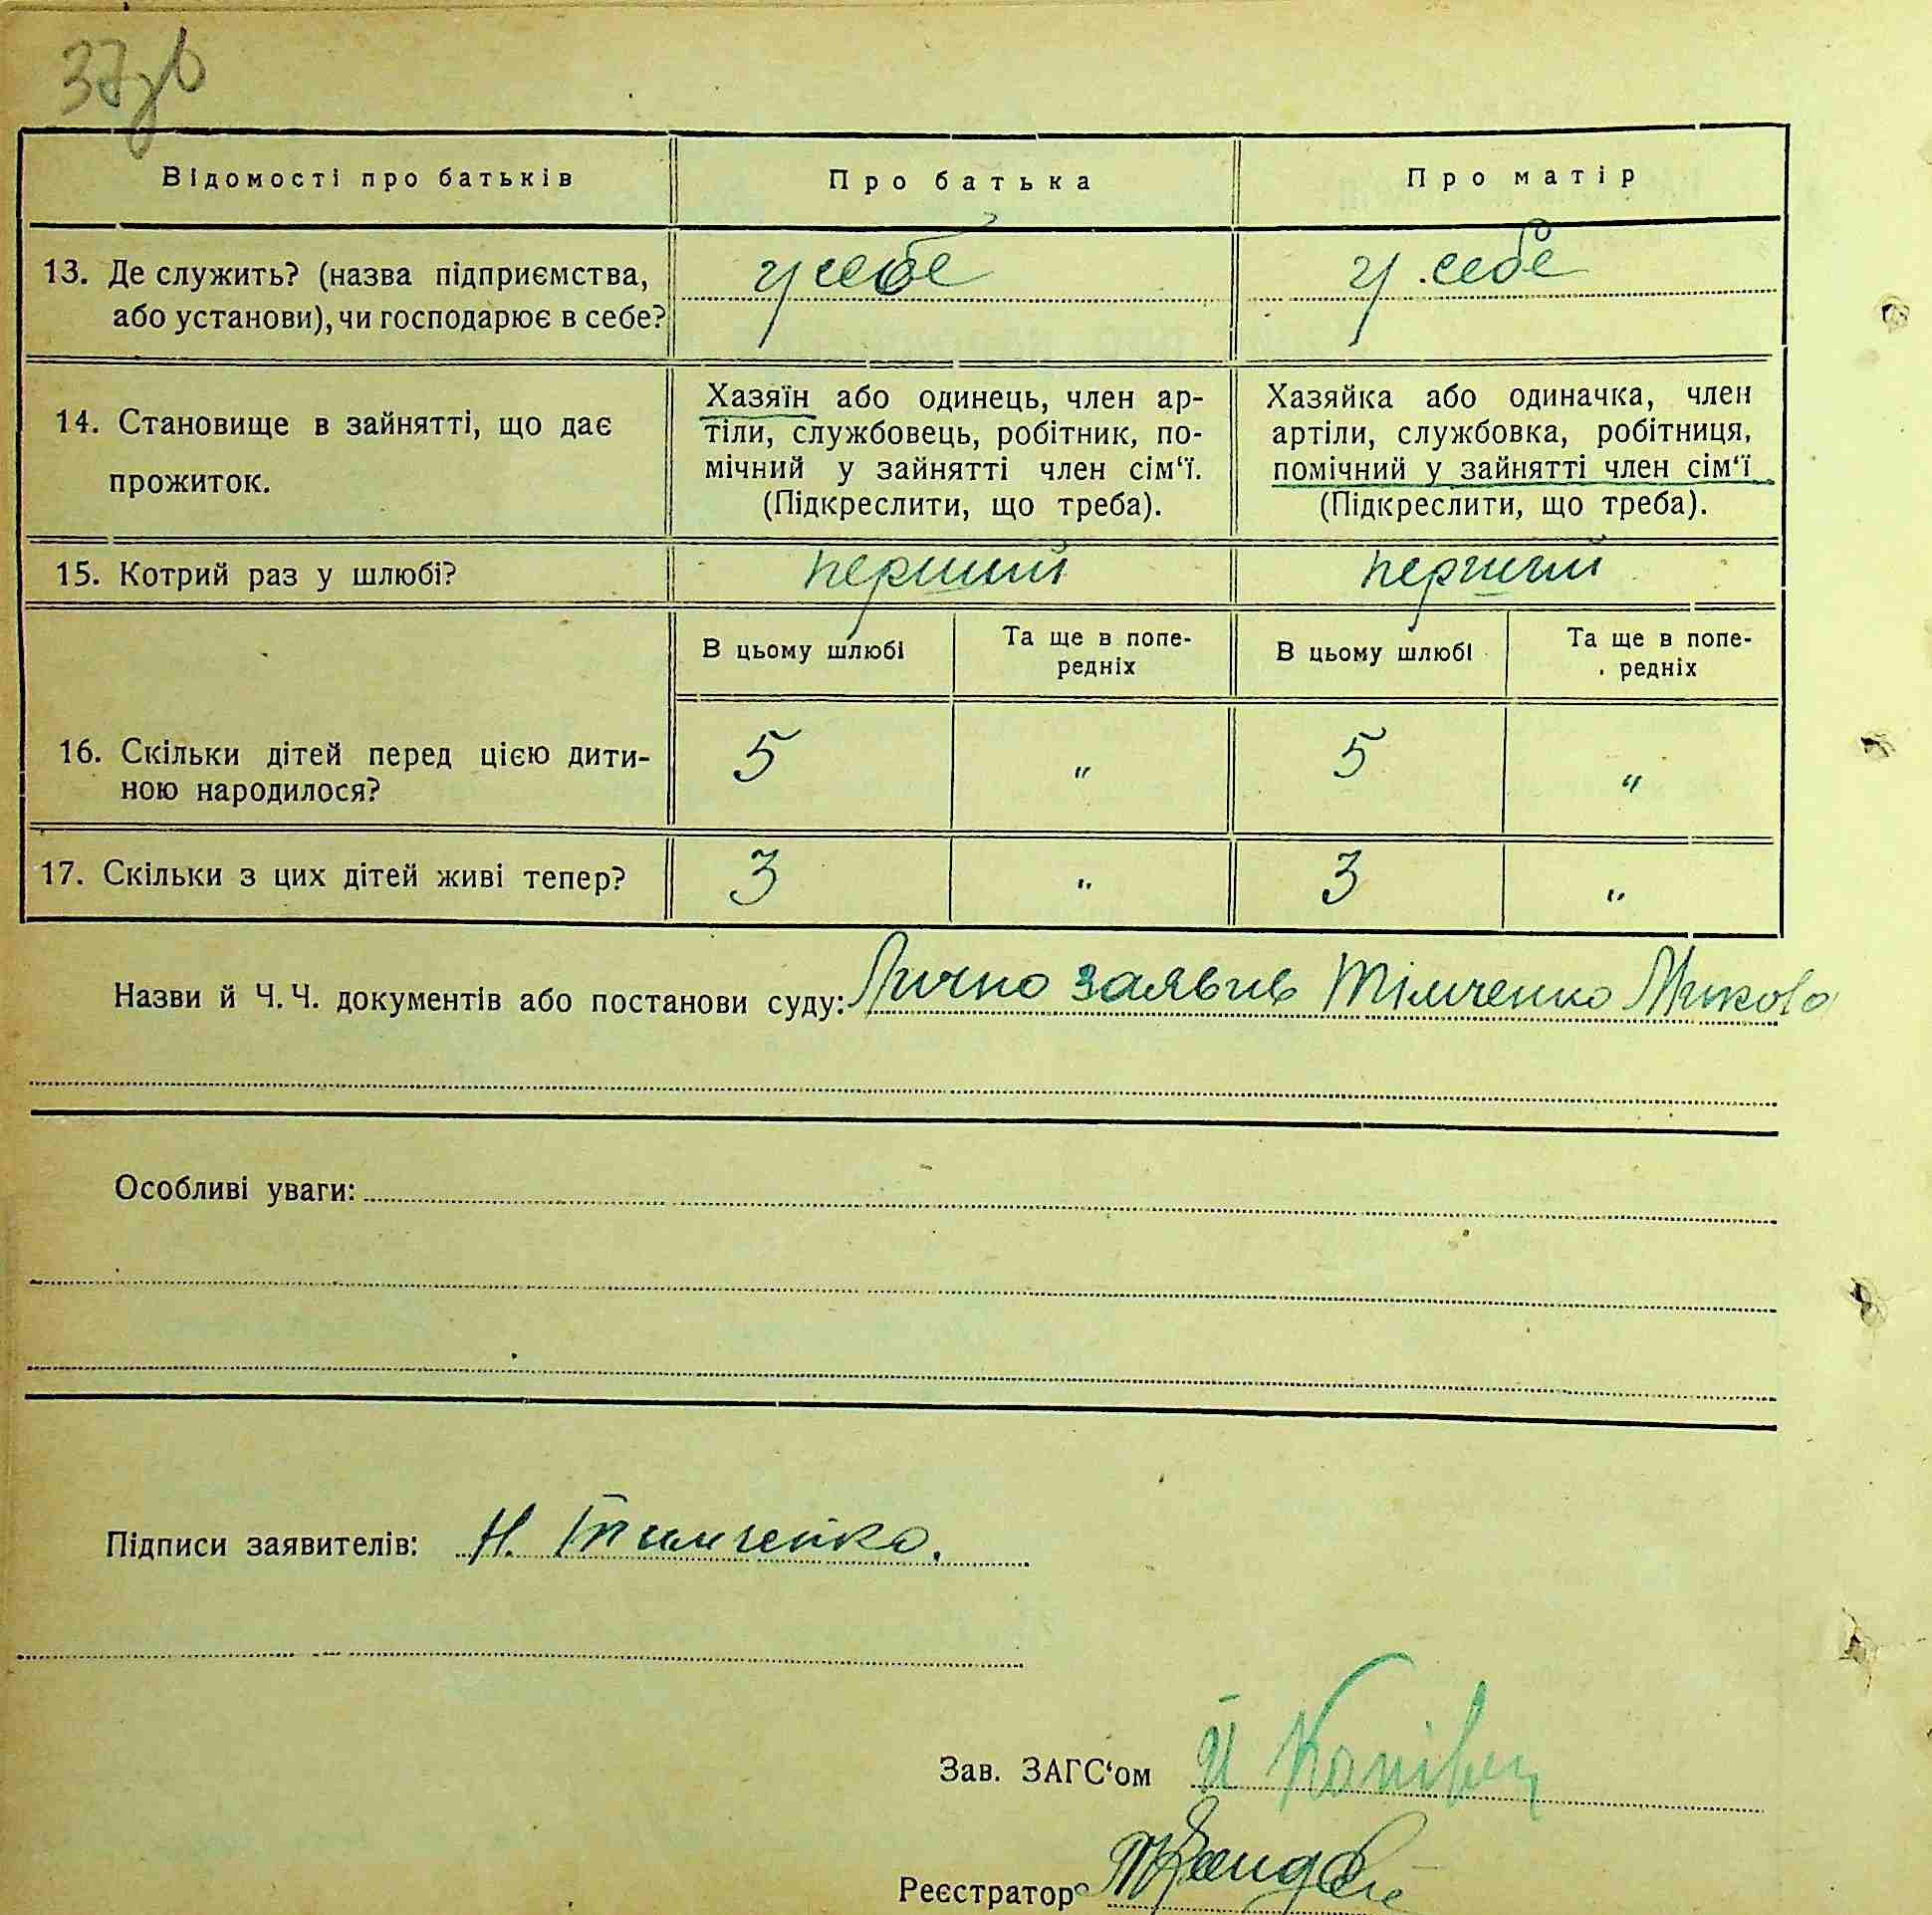 37зв
Відомості про батьків Про батька Про матір
13. Де служить? (назва підприємства, у себе у себе
або установи), чи господарює в себе?
14. Становище в зайнятті, що дає
прожиток.
Хазяїн або одинець, член ар-
тіли, службовець, робітник, по-
мічний у зайнятті член сім‘ї.
(Підкреслити, що треба).
Хазяйка або одиначка, член
артіли, службовка, робітниця,
помічний у зайнятті член сім‘ї
(Підкреслити, що треба).
15. Котрий раз у шлюбі? перший перший
В цьому шлюбі Та ще в попе-
редніх
В цьому шлюбі Та ще в попе-
редніх
16. Скільки дітей перед цією дити-
ною народилося?
5 " 5 "
17. Скільки з цих дітей живі тепер? 3 " 3 "
Назви й Ч. Ч. документів або постанови суду: Лично заявив Тімченко Микола
Особливі уваги:
Підписи заявителів: Н. Тимченко.
Зав. ЗАГС‘ом
Реєстратор